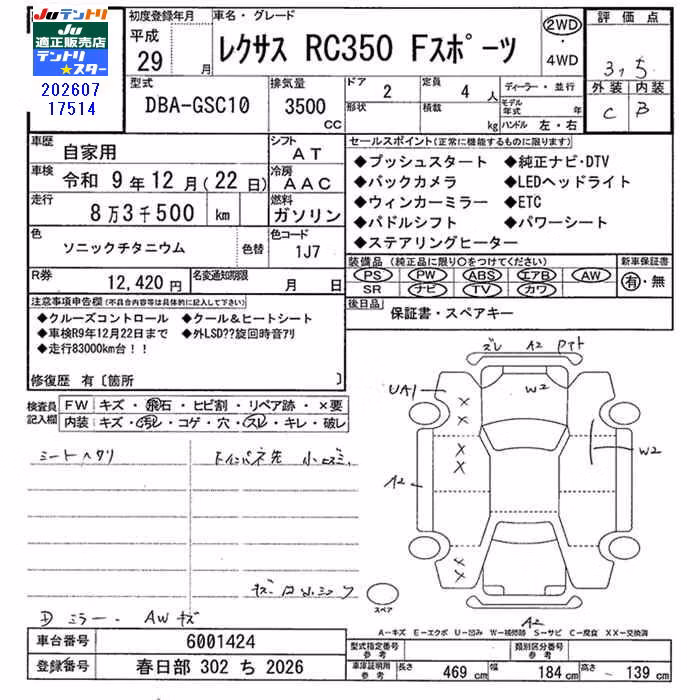 Juテントリ
Ju
適正販売店
テントリ
★スター
202607
17514
初度登録年月
平成
29 月
車名・グレード
レクサス RC350 Fスポーツ
2WD
・
4WD
評価点
3,5
外装 内装
C B
型式
DBA-GSC10
排気量
3500
CC
ドア
2
形状
定員
4 人
積載
kg
ディーラー・並行
モデル年式 年
ハンドル 左・右
車歴
自家用
シフト
AT
車検
令和 9年 12月(22日)
冷房
AAC
走行
8万3千500 km
燃料
ガソリン
色
ソニックチタニウム
色替
色コード
1J7
R券
12,420円
名変通知期限
月 日
セールスポイント(正常に機能するものに限ります)
◆プッシュスタート ◆純正ナビ・DTV
◆バックカメラ ◆LEDヘッドライト
◆ウィンカーミラー ◆ETC
◆パドルシフト ◆パワーシート
◆ステアリングヒーター
装備品(純正品に限り○をつけてください)
PS PW ABS エアB AW
SR ナビ TV カワ
新車保証書
有・無
後日品
保証書・スペアキー
注意事項申告欄(不具合内容等は具体的に記入して下さい)
◆クルーズコントロール ◆クール&ヒートシート
◆車検R9年12月22日まで ◆外LSD??旋回時音アリ
◆走行83000km台!!
修復歴 有〔箇所 〕
検査員
記入欄
FW キズ・飛石・ヒビ割・リペア跡・×要
内装 キズ・汚レ・コゲ・穴・スレ・キレ・破レ
シートヘタリ
Dミラー、AWキズ
ズレ A2
W2
UA1
W2
A2
A2
スペア
A-キズ E-エクボ U-凹み W-補修跡 S-サビ C-腐食 XX-交換済
車台番号
6001424
登録番号
春日部 302 ち 2026
型式指定番号
参考
類別区分番号
参考
車庫証明用
参考
長さ 469 cm
幅 184 cm
高さ 139 cm